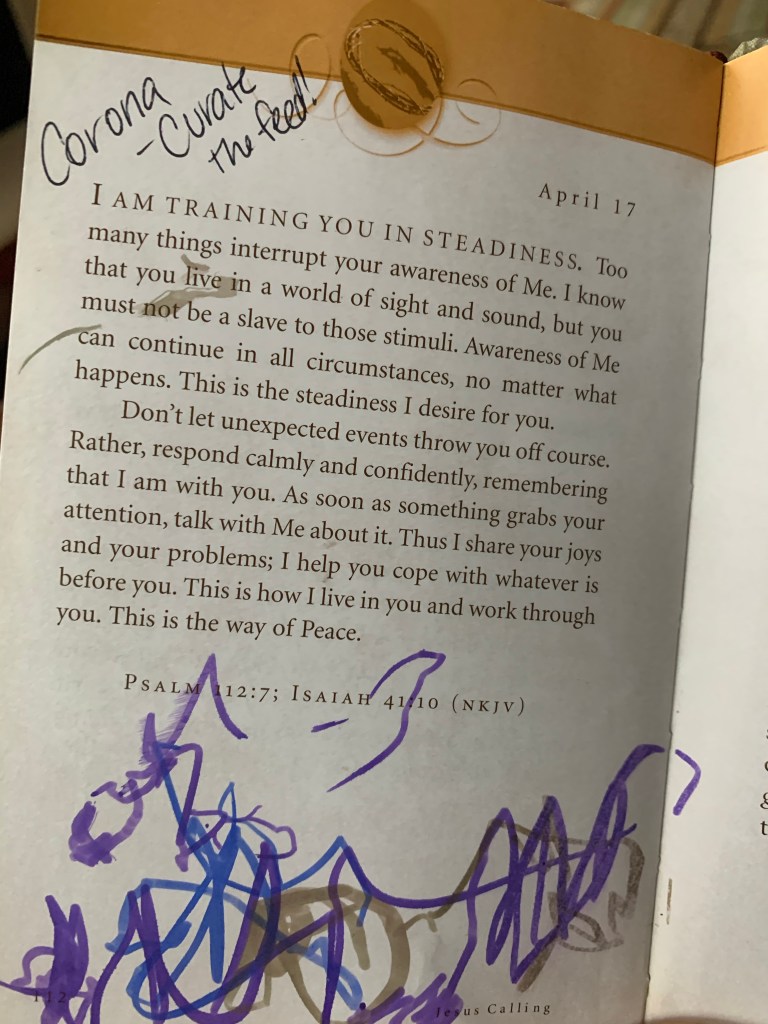 Corona
- Curate
the feed!
April 17
I AM TRAINING YOU IN STEADINESS. Too
many things interrupt your awareness of Me. I know
that you live in a world of sight and sound, but you
must not be a slave to those stimuli. Awareness of Me
can continue in all circumstances, no matter what
happens. This is the steadiness I desire for you.
Don't let unexpected events throw you off course.
Rather, respond calmly and confidently, remembering
that I am with you. As soon as something grabs your
attention, talk with Me about it. Thus I share your joys
and your problems; I help you cope with whatever is
before you. This is how I live in you and work through
you. This is the way of Peace.
PSALM 112:7; ISAIAH 41:10 (NKJV)
112
Jesus Calling